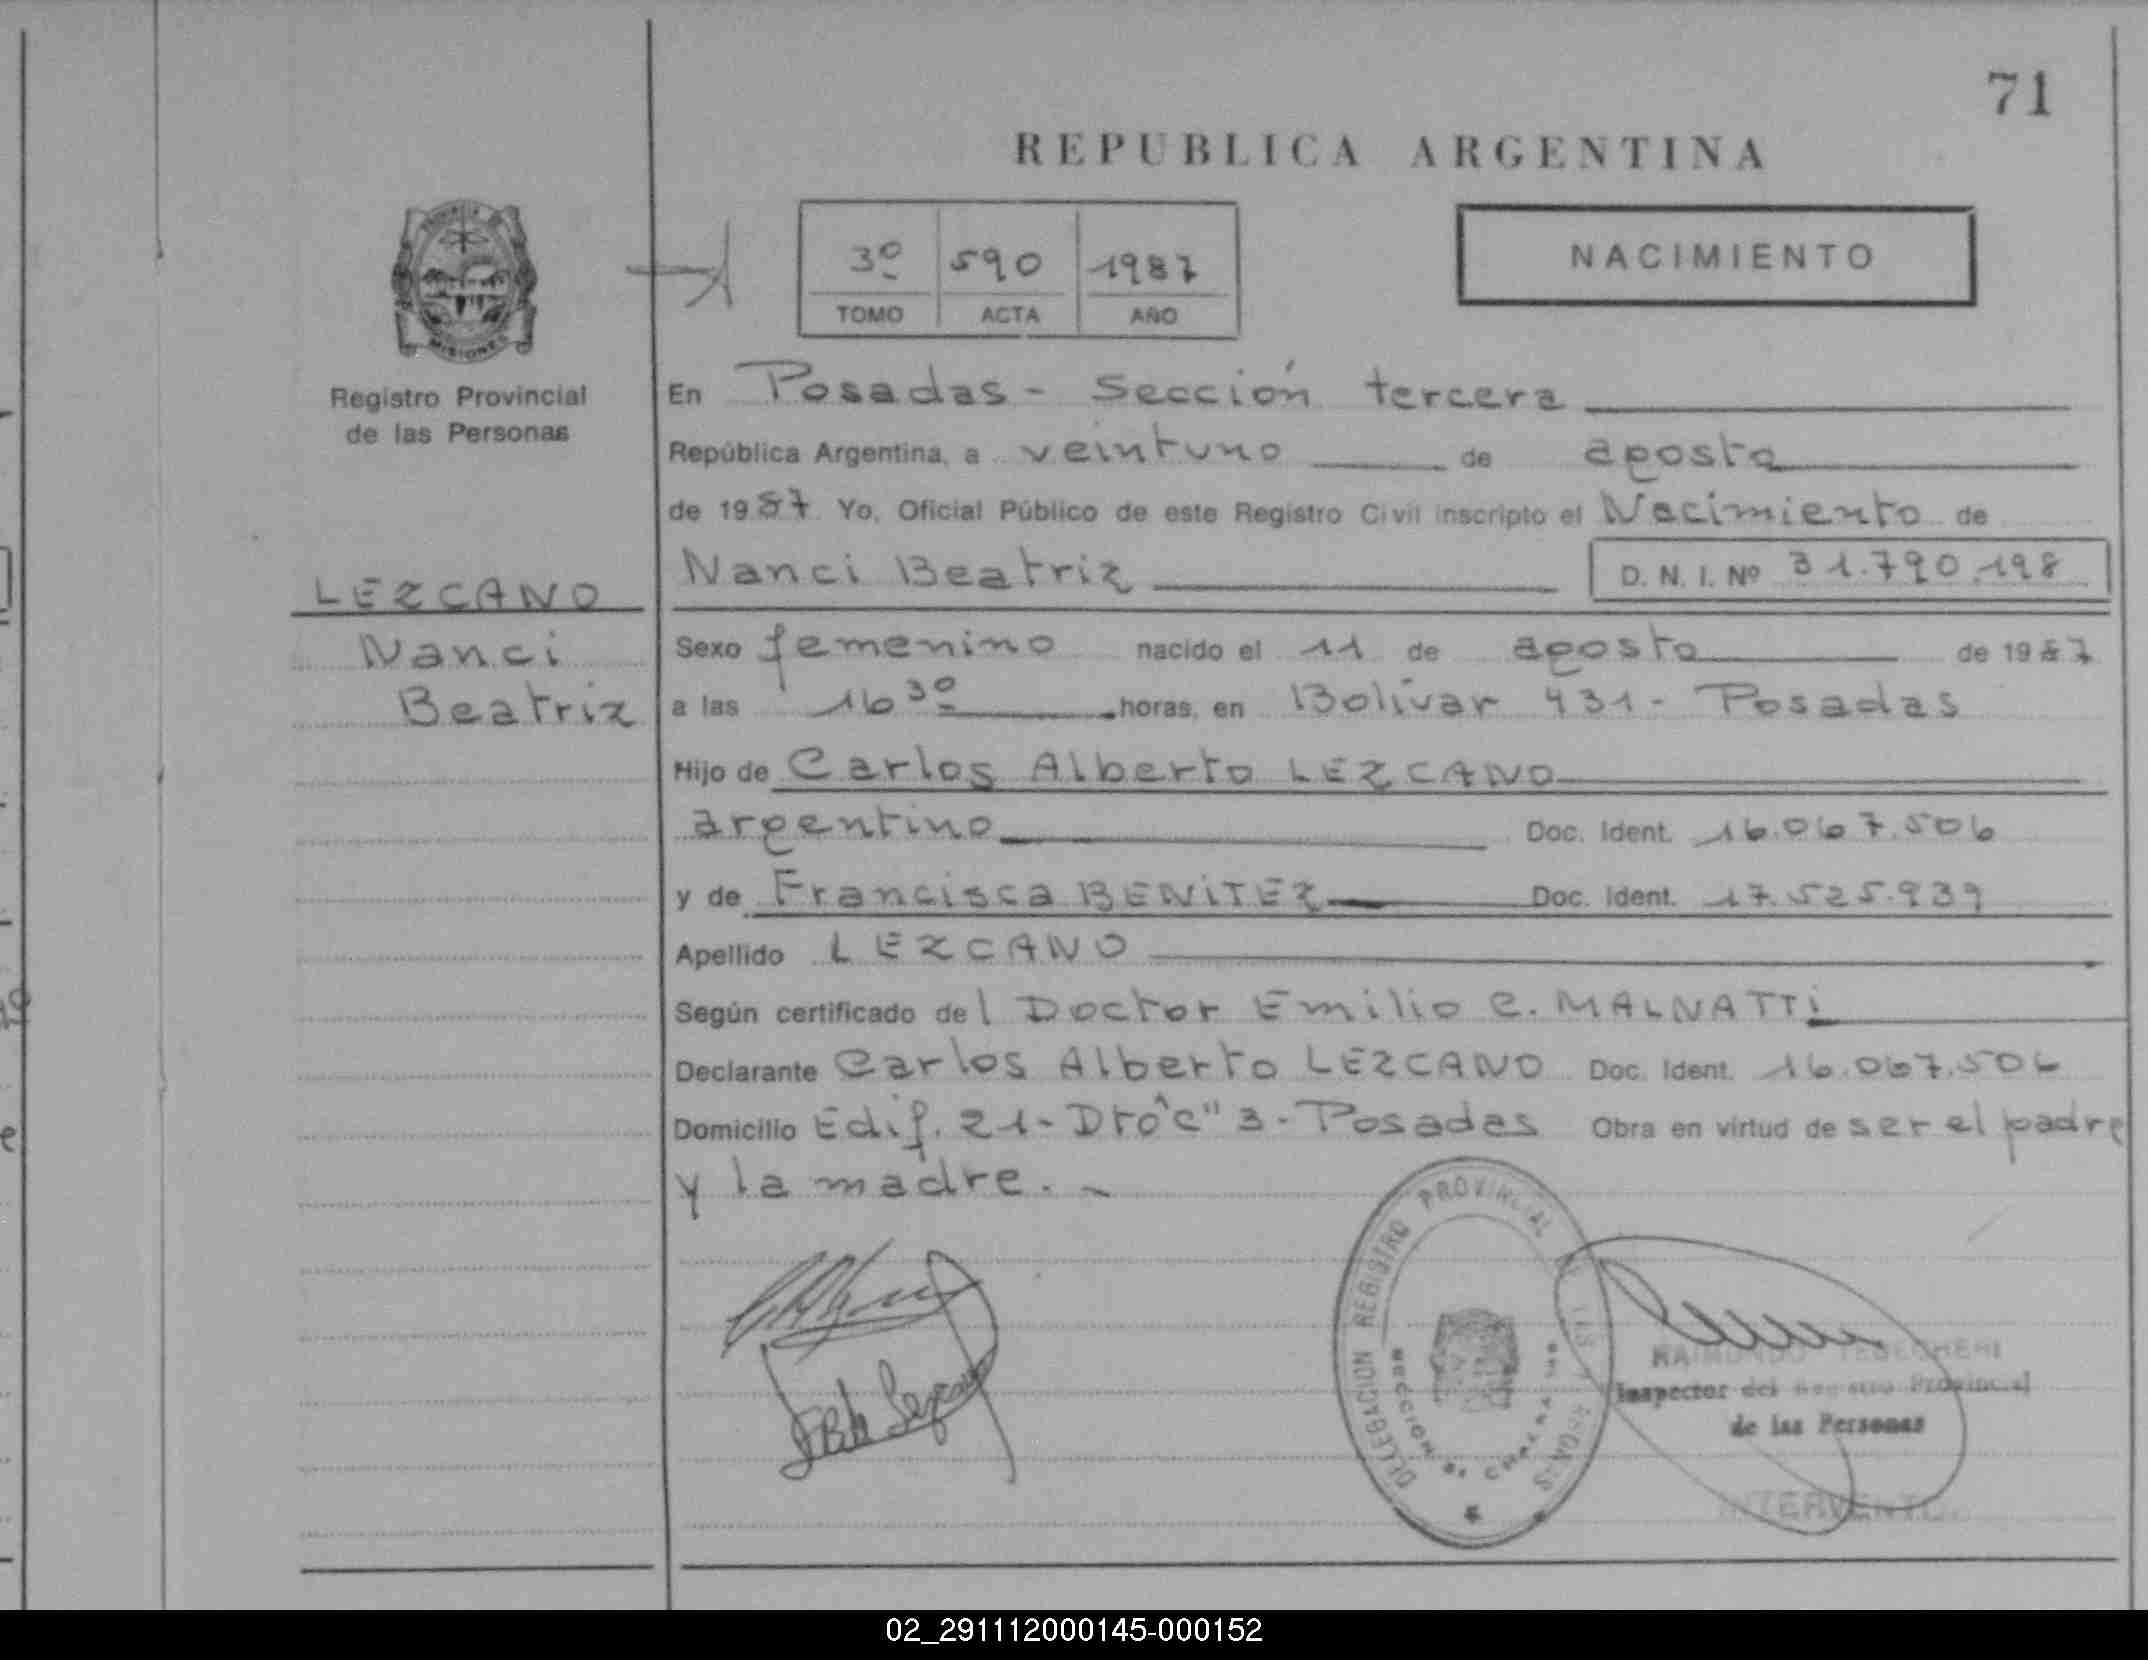 71
REPUBLICA ARGENTINA
3º 590 1987
TOMO ACTA AÑO
NACIMIENTO
MISIONES
Registro Provincial
de las Personas
En Posadas - Sección tercera
República Argentina, a veintuno de agosto
de 1987 Yo, Oficial Público de este Registro Civil inscripto el Nacimiento de
Nanci Beatriz D. N. I. Nº 31.790.198
LEZCANO
Nanci
Beatriz
Sexo femenino nacido el 11 de agosto de 1987
a las 16 30 horas, en Bolívar 431 - Posadas
Hijo de Carlos Alberto LEZCANO
argentino Doc. Ident. 16.067.506
y de Francisca BENITEZ Doc. Ident. 17.525.939
Apellido LEZCANO
Según certificado del Doctor Emilio C. MALNATTI
Declarante Carlos Alberto LEZCANO Doc. Ident. 16.067.506
Domicilio Edif. 21 - Dto "C" 3 - Posadas Obra en virtud de ser el padre
y la madre. -
DELEGACION REGISTRO PROVINCIAL DE LAS PERSONAS
RAIMUNDO
Inspector del Registro Provincial
de las Personas
02_291112000145-000152